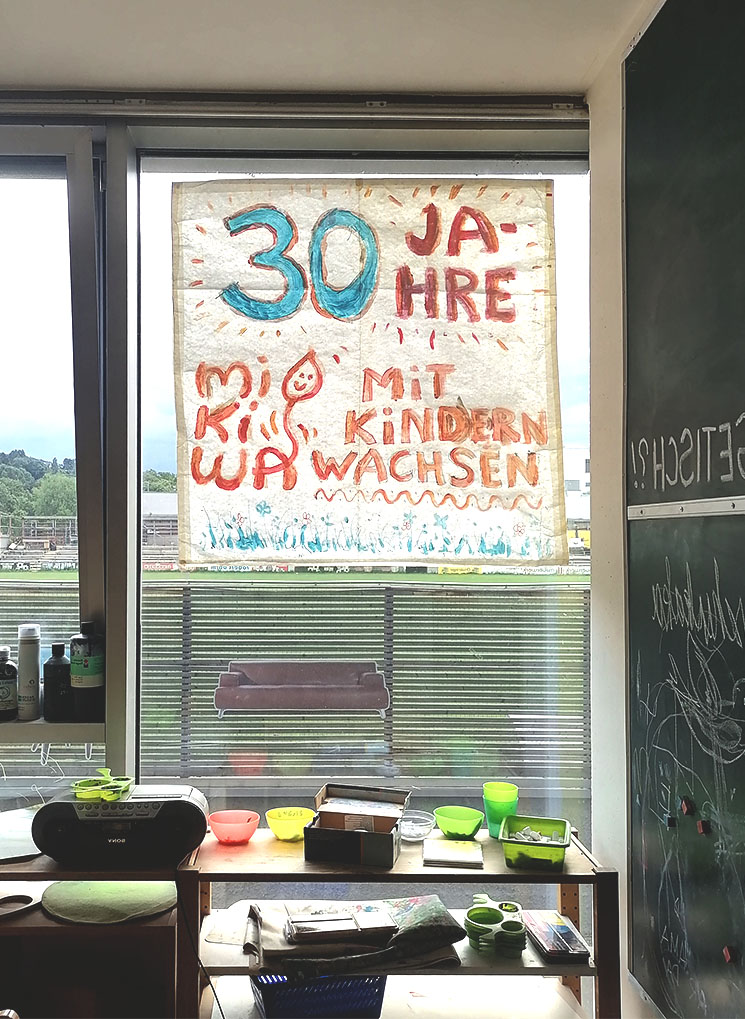 30 JA-
HRE
Mi
Ki
WA
MiT
KiNDERN
WACHSEN
GETISCH?!
SONY